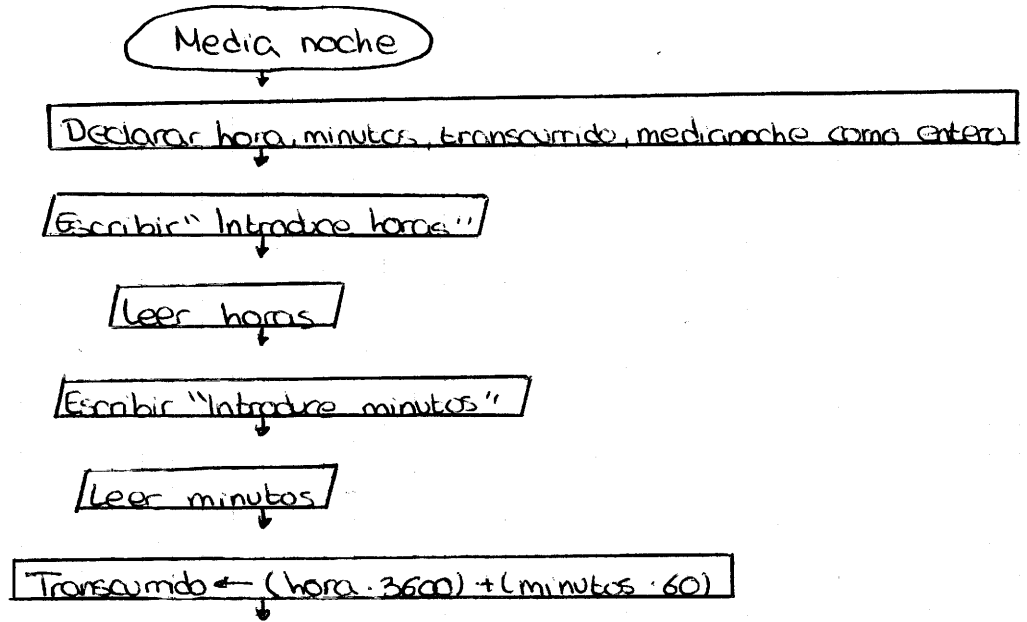 Media noche
Declarar hora, minutos, transcurrido, medianoche como entero
Escribir "Introduce horas"
Leer horas
Escribir "Introduce minutos"
Leer minutos
Transcurrido ← (hora · 3600) + (minutos · 60)